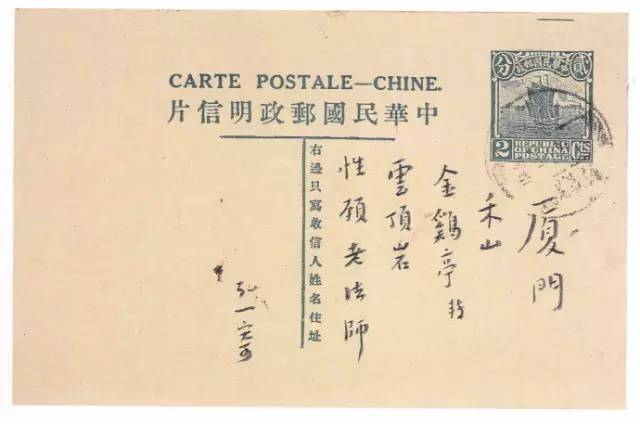 CARTE POSTALE—CHINE.
片信明政郵國民華中
分 貳
政郵國民華中
2 REPUBLIC OF CHINA POSTAGE Cts
厦門
禾山
金鷄亭 轉
雲頂岩
性願老法師
右邊只寫收信人姓名住址
弘一寄